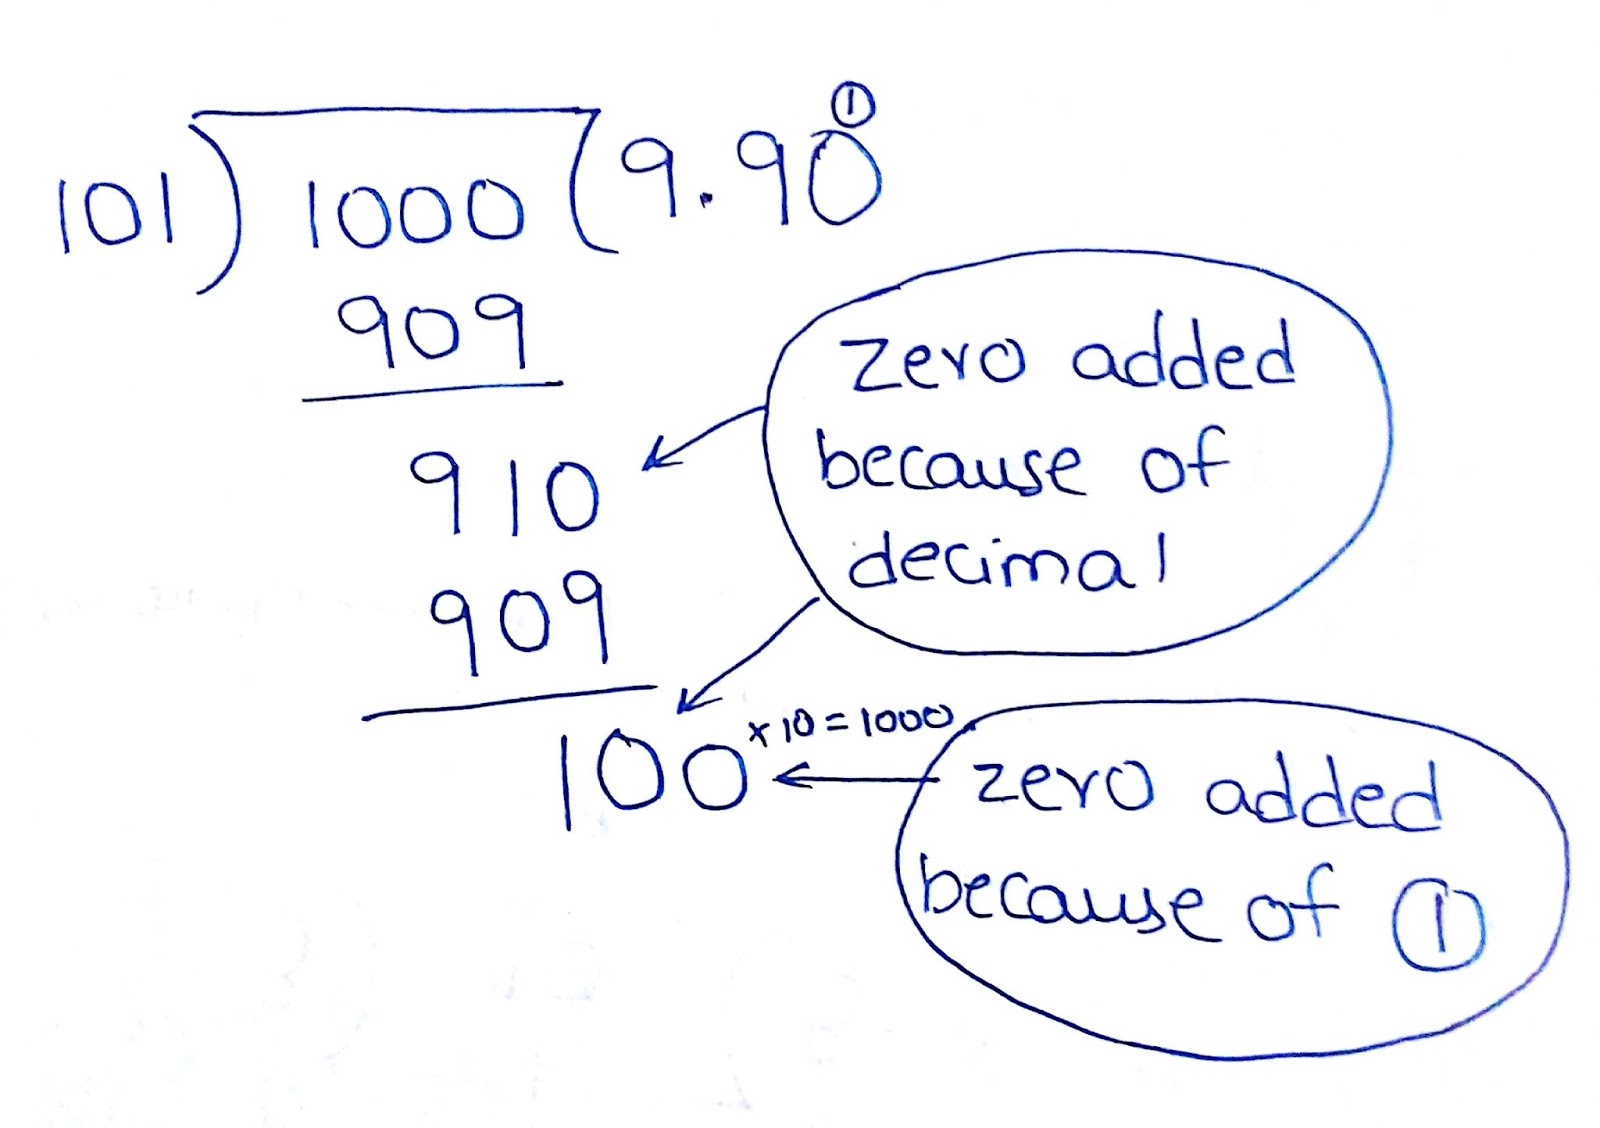 ①
101) 1000 (9.90
909
910
909
100 × 10 = 1000
zero added
because of
decimal
zero added
because of ①